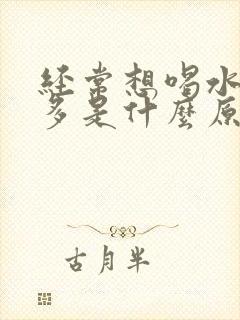 经常想喝水
多是什麼原
古月半